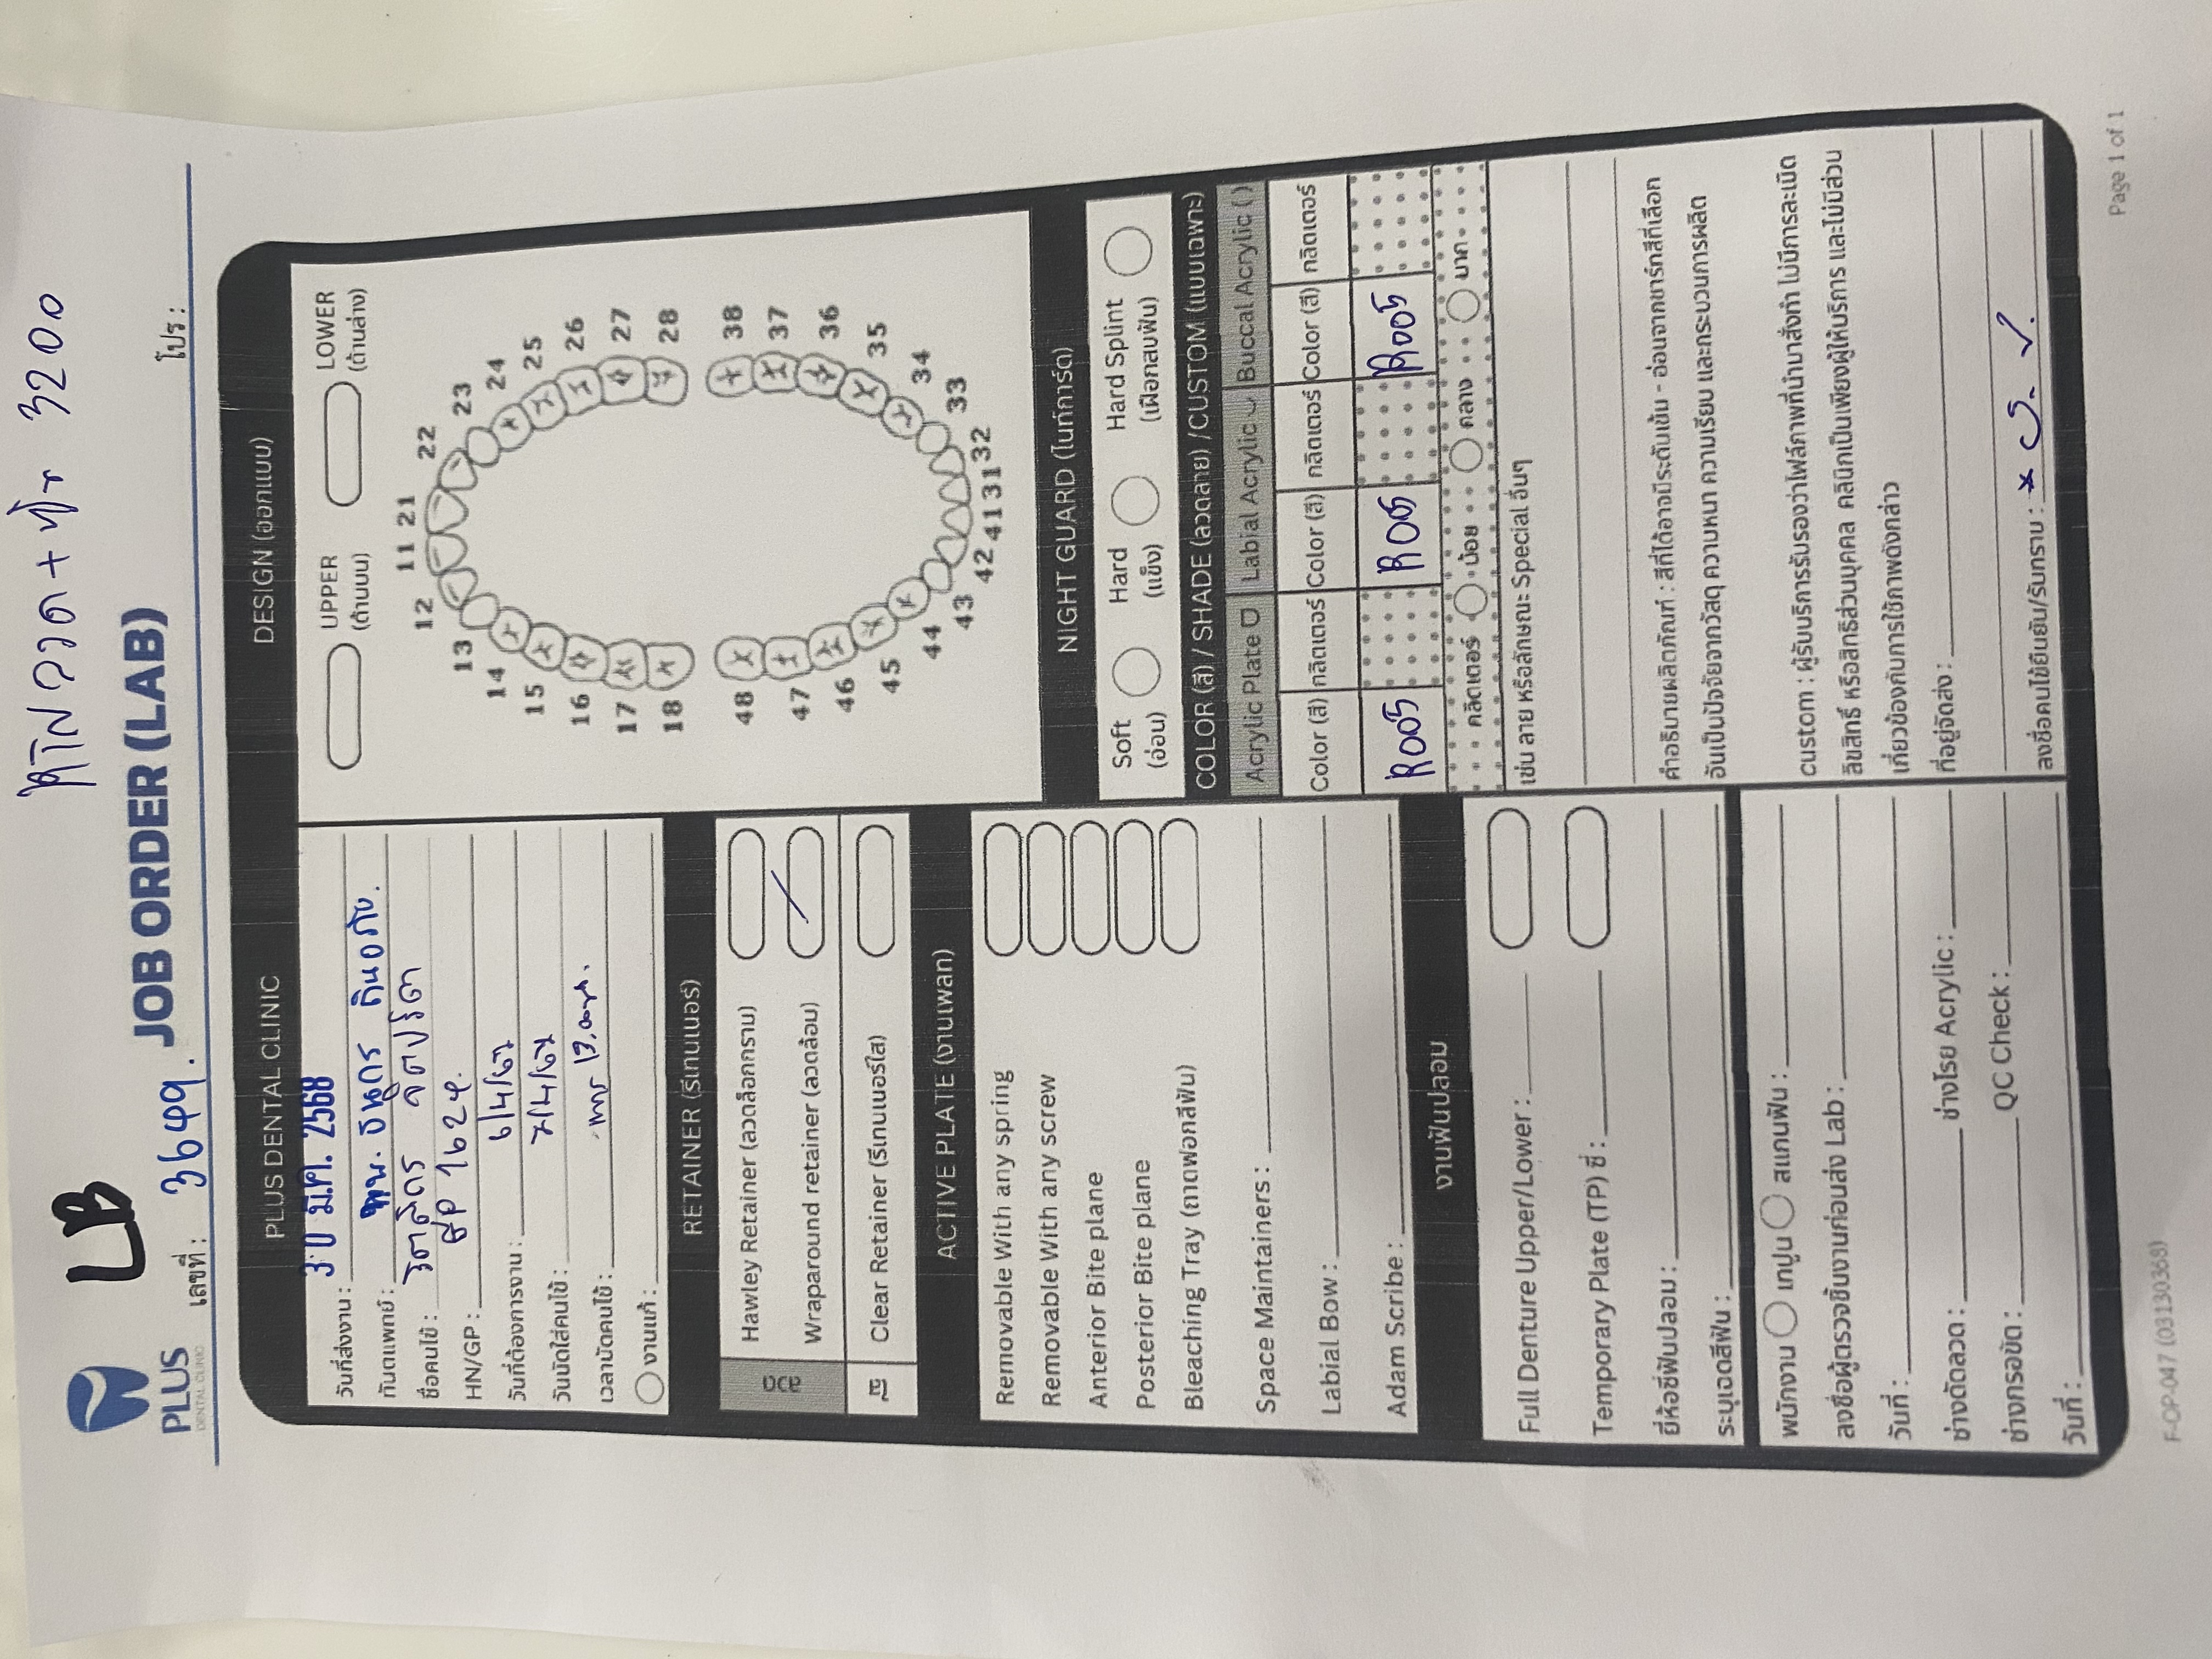 LB
+ 3200
PLUS
DENTAL CLINIC
JOB ORDER (LAB)
เลขที่ : 3649.
โปร :
PLUS DENTAL CLINIC
วันที่ส่งงาน : 30 มี.ค. 2568
ทันตแพทย์ : ทพ. ธนกร
ชื่อคนไข้ :
HN/GP : GP 1624.
วันที่ต้องการงาน : 6/4/67
วันนัดใส่คนไข้ : 7/4/67
เวลานัดคนไข้ :
งานแก้ :
RETAINER (รีเทนเนอร์)
ลวด
Hawley Retainer (ลวดล็อกกราม)
Wraparound retainer (ลวดล้อม)
ใส
Clear Retainer (รีเทนเนอร์ใส)
ACTIVE PLATE (งานเพลท)
Removable With any spring
Removable With any screw
Anterior Bite plane
Posterior Bite plane
Bleaching Tray (ถาดฟอกสีฟัน)
Space Maintainers :
Labial Bow :
Adam Scribe :
งานฟันปลอม
Full Denture Upper/Lower :
Temporary Plate (TP) ซี่ :
ยี่ห้อซี่ฟันปลอม :
ระบุเฉดสีฟัน :
พนักงาน เทปูน สแกนฟัน :
ลงชื่อผู้ตรวจชิ้นงานก่อนส่ง Lab :
วันที่ :
ช่างดัดลวด : ช่างโรย Acrylic :
ช่างกรอขัด : QC Check :
วันที่ :
DESIGN (ออกแบบ)
UPPER LOWER
(ด้านบน) (ด้านล่าง)
11 21
12 22
13 23
14 24
15 25
16 26
17 27
18 28
48 38
47 37
46 36
45 35
44 34
43 33
42 41 31 32
NIGHT GUARD (ไนท์การ์ด)
Soft Hard Hard Splint
(อ่อน) (แข็ง) (เฝือกสบฟัน)
COLOR (สี) / SHADE (ลวดลาย) /CUSTOM (แบบเฉพาะ)
Acrylic Plate Labial Acrylic Buccal Acrylic ( )
Color (สี) กลิตเตอร์ Color (สี) กลิตเตอร์ Color (สี) กลิตเตอร์
R005 R005 R005
กลิตเตอร์ น้อย กลาง มาก
เช่น ลาย หรือลักษณะ Special อื่นๆ
คำอธิบายผลิตภัณฑ์ : สีที่ได้อาจมีระดับเข้ม - อ่อนจากชาร์ทสีที่เลือก
อันเป็นปัจจัยจากวัสดุ ความหนา ความเรียบ และกระบวนการผลิต
custom : ผู้รับบริการรับรองว่าไฟล์ภาพที่นำมาสั่งทำ ไม่มีการละเมิด
ลิขสิทธิ์ หรือสิทธิส่วนบุคคล คลินิกเป็นเพียงผู้ให้บริการ และไม่มีส่วน
เกี่ยวข้องกับการใช้ภาพดังกล่าว
ที่อยู่จัดส่ง :
ลงชื่อคนไข้ยืนยัน/รับทราบ :
Page 1 of 1
F-OP-047 (03130368)